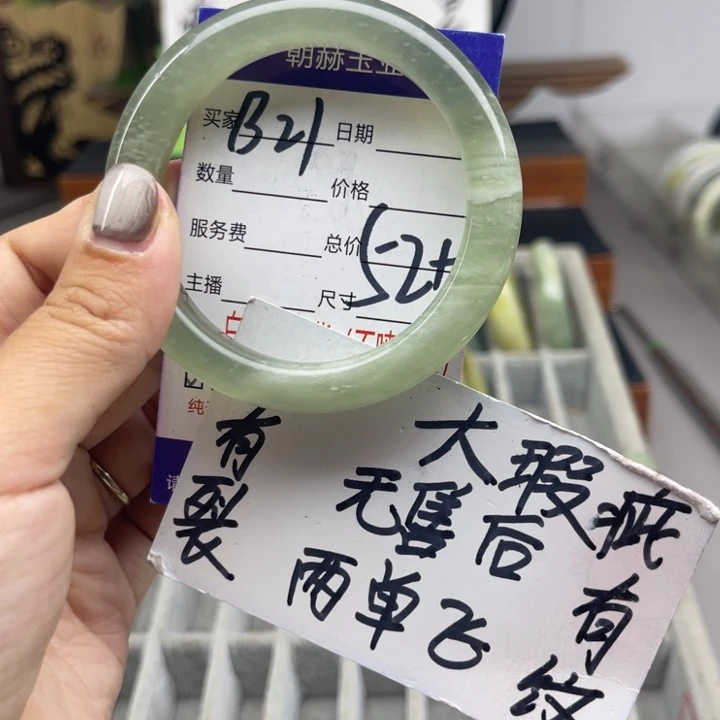 朝赫玉业
买家 B21 日期
数量 价格
服务费 总价
主播 尺寸 52+
纯
请
大瑕疵
无售后
两单飞
有裂
有纹